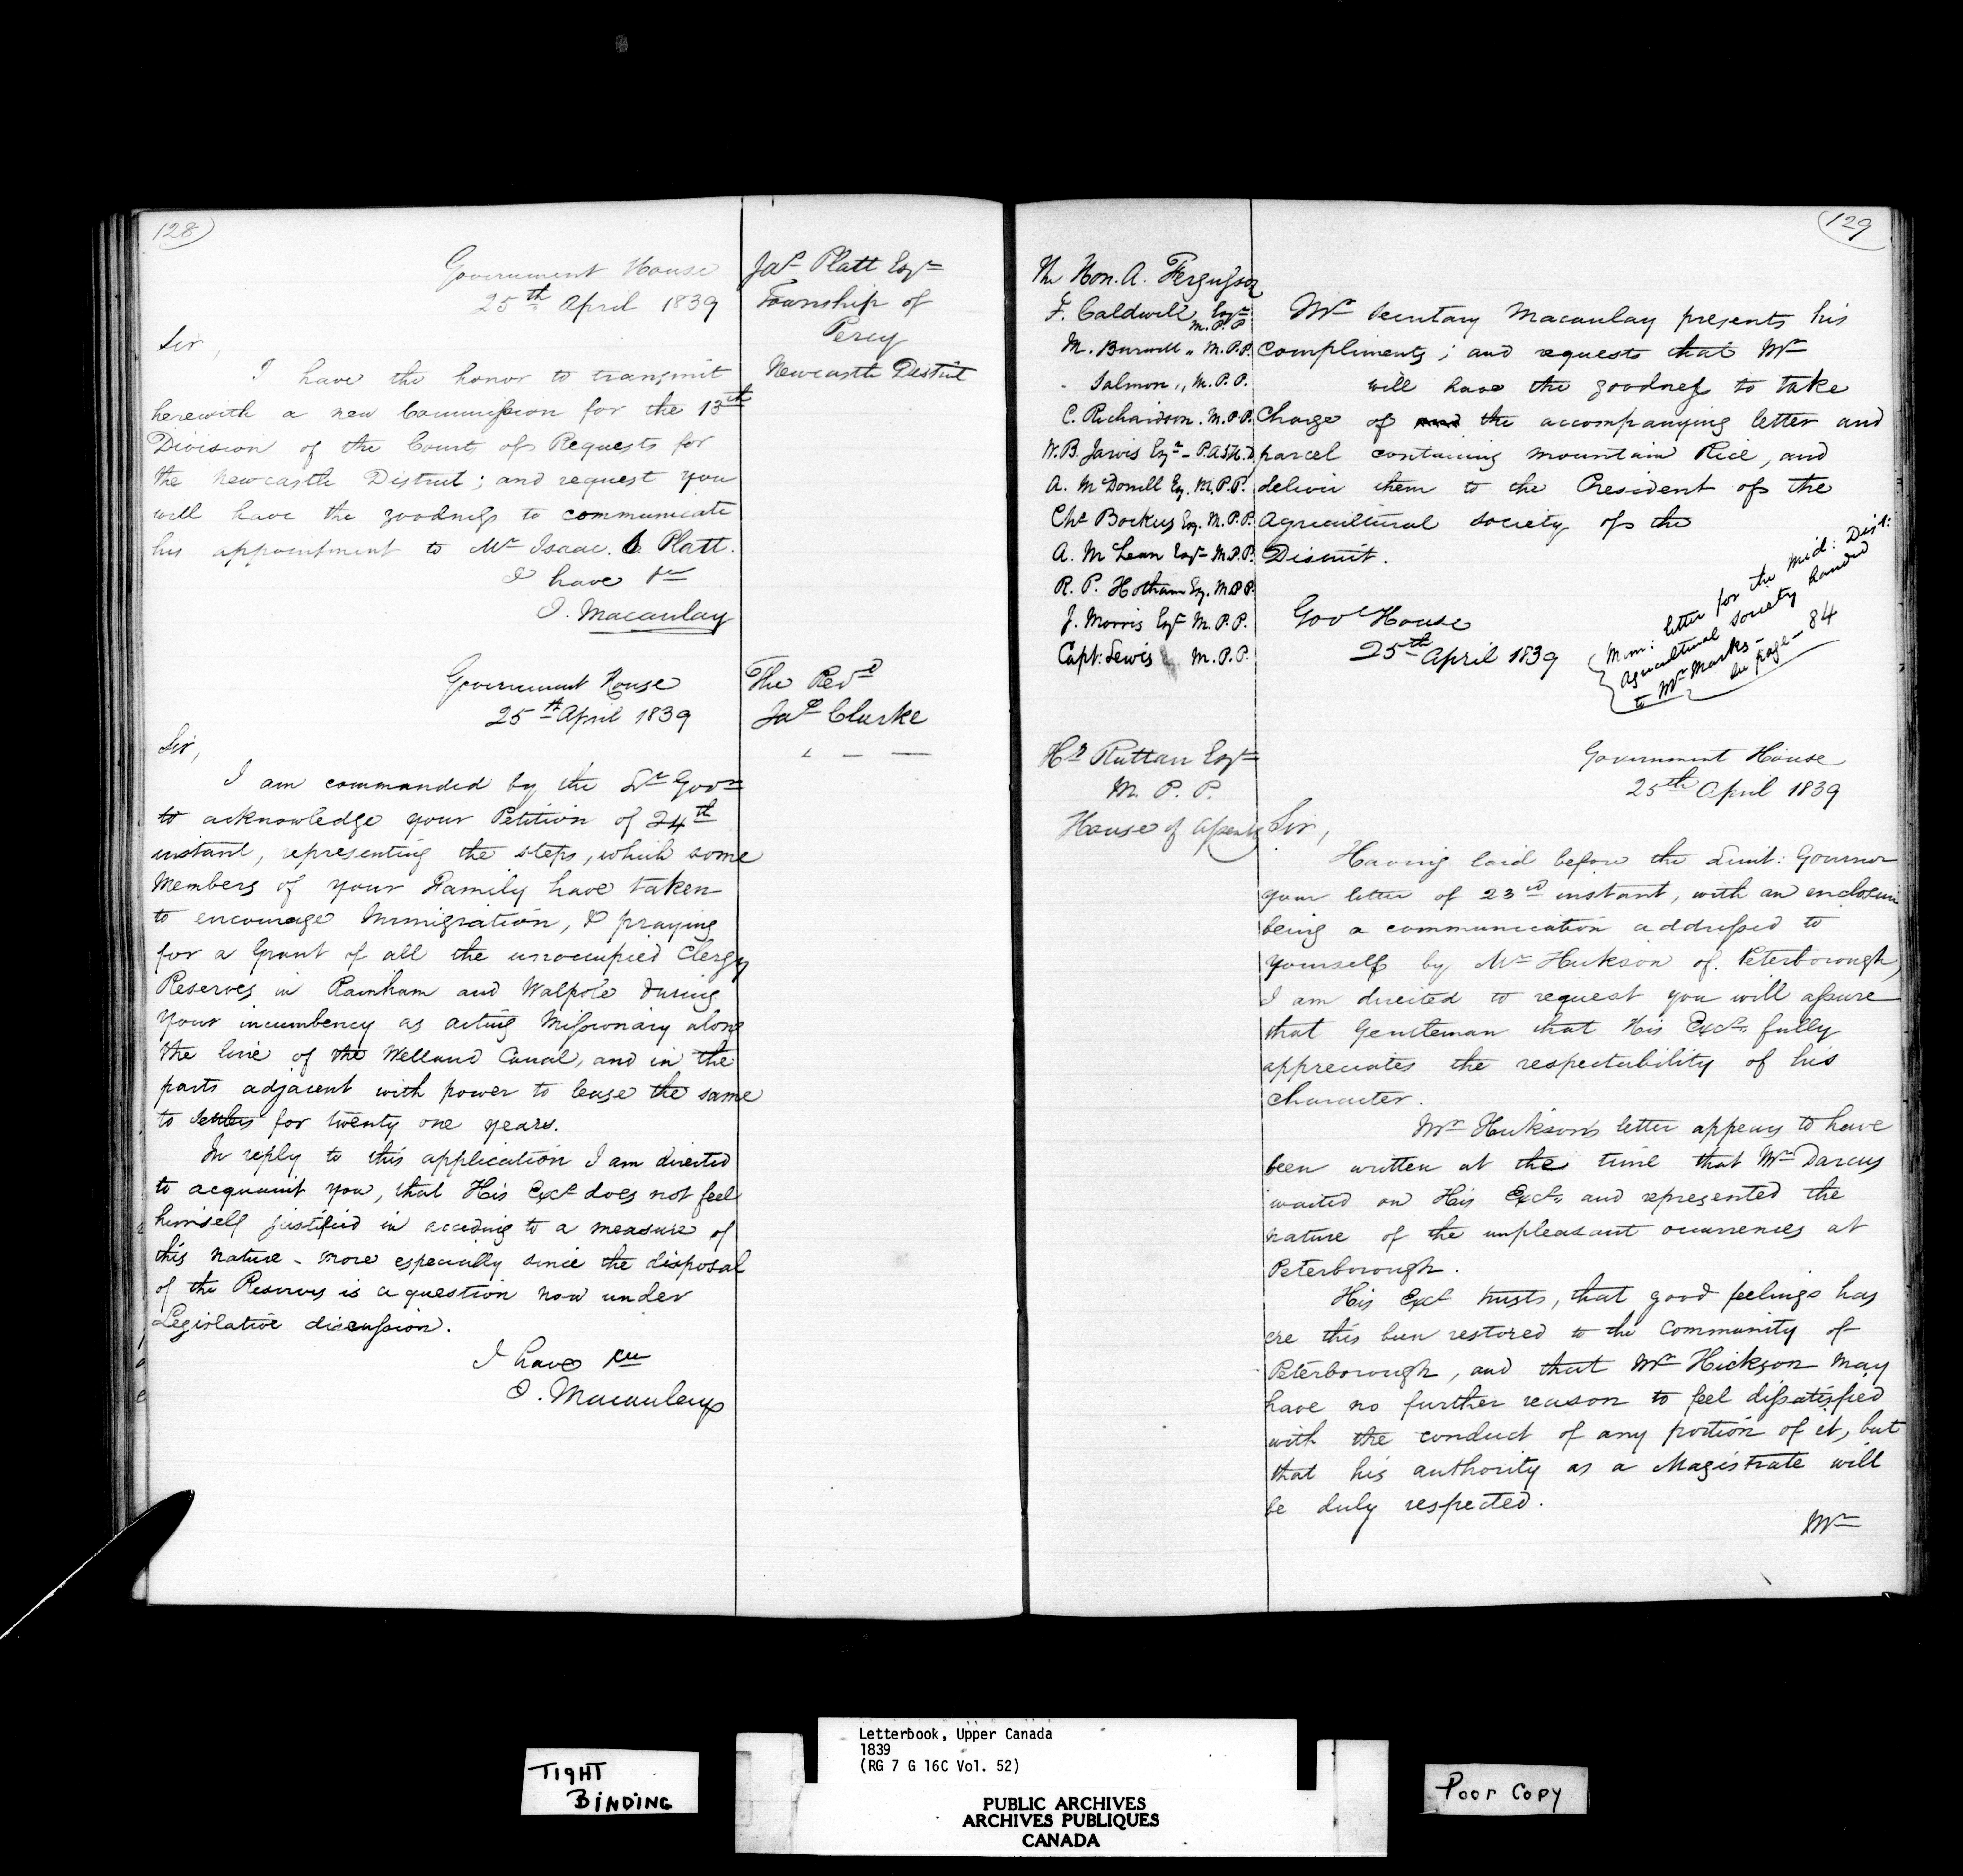 128
Government House
25th April 1839
Jas Platt Esqr
Township of
Percy
Newcastle District
Sir,
I have the honor to transmit
herewith a new Commission for the 13th
Division of the Court of Requests for
the Newcastle District; and request you
will have the goodness to communicate
his appointment to Mr Isaac. B Platt.
I have &c
J. Macaulay
Government House
25th April 1839
The Revd
Jas Clarke
Sir,
I am commanded by the Lt Govr
to acknowledge your Petition of 24th
instant, representing the steps, which some
Members of your Family have taken
to encourage Immigration, & praying
for a Grant of all the unoccupied Clergy
Reserves in Rainham and Walpole during
your incumbency as acting Missionary along
the line of the Welland Canal, and in the
parts adjacent with power to lease the same
to settlers for twenty one years.
In reply to this application I am directed
to acquaint you, that His Excy does not feel
himself justified in acceding to a measure of
this nature - more especially since the disposal
of the Reserves is a question now under
Legislative discussion.
I have &c
J. Macaulay
129
The Hon. A. Fergusson
F. Caldwell Esqr M.P.P
M. Burwell " M.P.P.
Salmon " M.P.P.
C. Richardson. M.P.P.
W.B. Jarvis Esqr - P.A.S.H.D.
A. McDonell Eq. M.P.P.
Chs Bockus Esq. M.P.P.
A. McLean Esqr M.P.P.
R. P. Hotham Eq. M.P.P.
J. Morris Esqr M.P.P.
Capt: Lewis M.P.P.
Mr Secretary Macaulay presents his
compliments; and requests that Mr
will have the goodness to take
Charge of and the accompanying letter and
parcel containing mountain Rice, and
deliver them to the President of the
Agricultural society of the
District.
Govt House
25th April 1839
Mem: letter for the Mid: Dist:
Agricultural society handed
to Mr Marks -
See page - 84
Hy Ruttan Esqr
M. P. P.
House of Assembly
Government House
25th April 1839
Sir,
Having laid before the Lieut: Governor
your letter of 23rd instant, with an enclosure
being a communication addressed to
yourself by Mr Hickson of Peterborough,
I am directed to request you will assure
that Gentleman that His Excy fully
appreciates the respectability of his
character.
Mr Hickson's letter appears to have
been written at the time that Mr Darcus
waited on His Excy and represented the
nature of the unpleasant occurrences at
Peterborough.
His Excy trusts, that good feelings has
ere this been restored to the Community of
Peterborough, and that Mr Hickson may
have no further reason to feel dissatisfied
with the conduct of any portion of it, but
that his authority as a Magistrate will
be duly respected.
Mr
TIGHT
BINDING
Letterbook, Upper Canada
1839
(RG 7 G 16C Vol. 52)
PUBLIC ARCHIVES
ARCHIVES PUBLIQUES
CANADA
Poor Copy